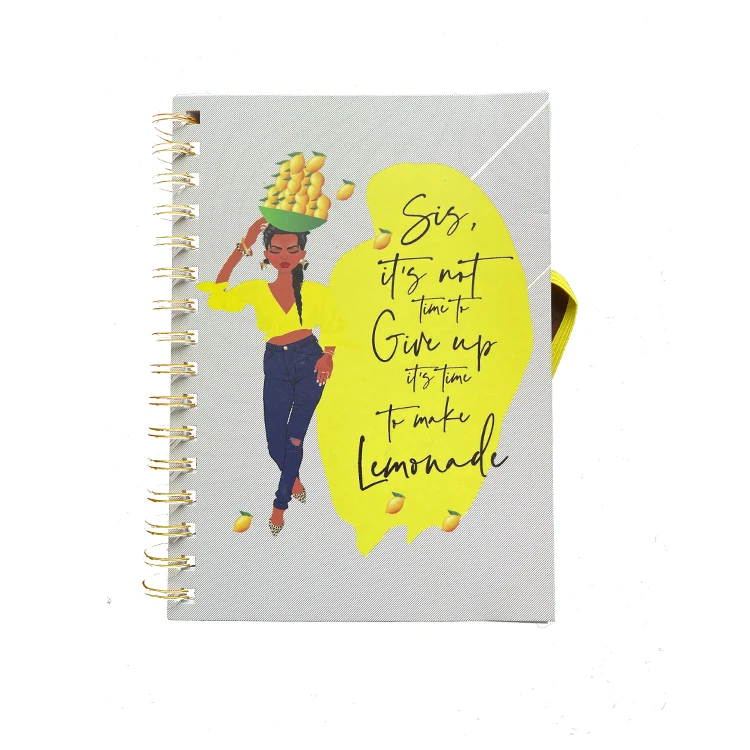 Sis,
it's not
time to
Give up
it's time
to make
Lemonade